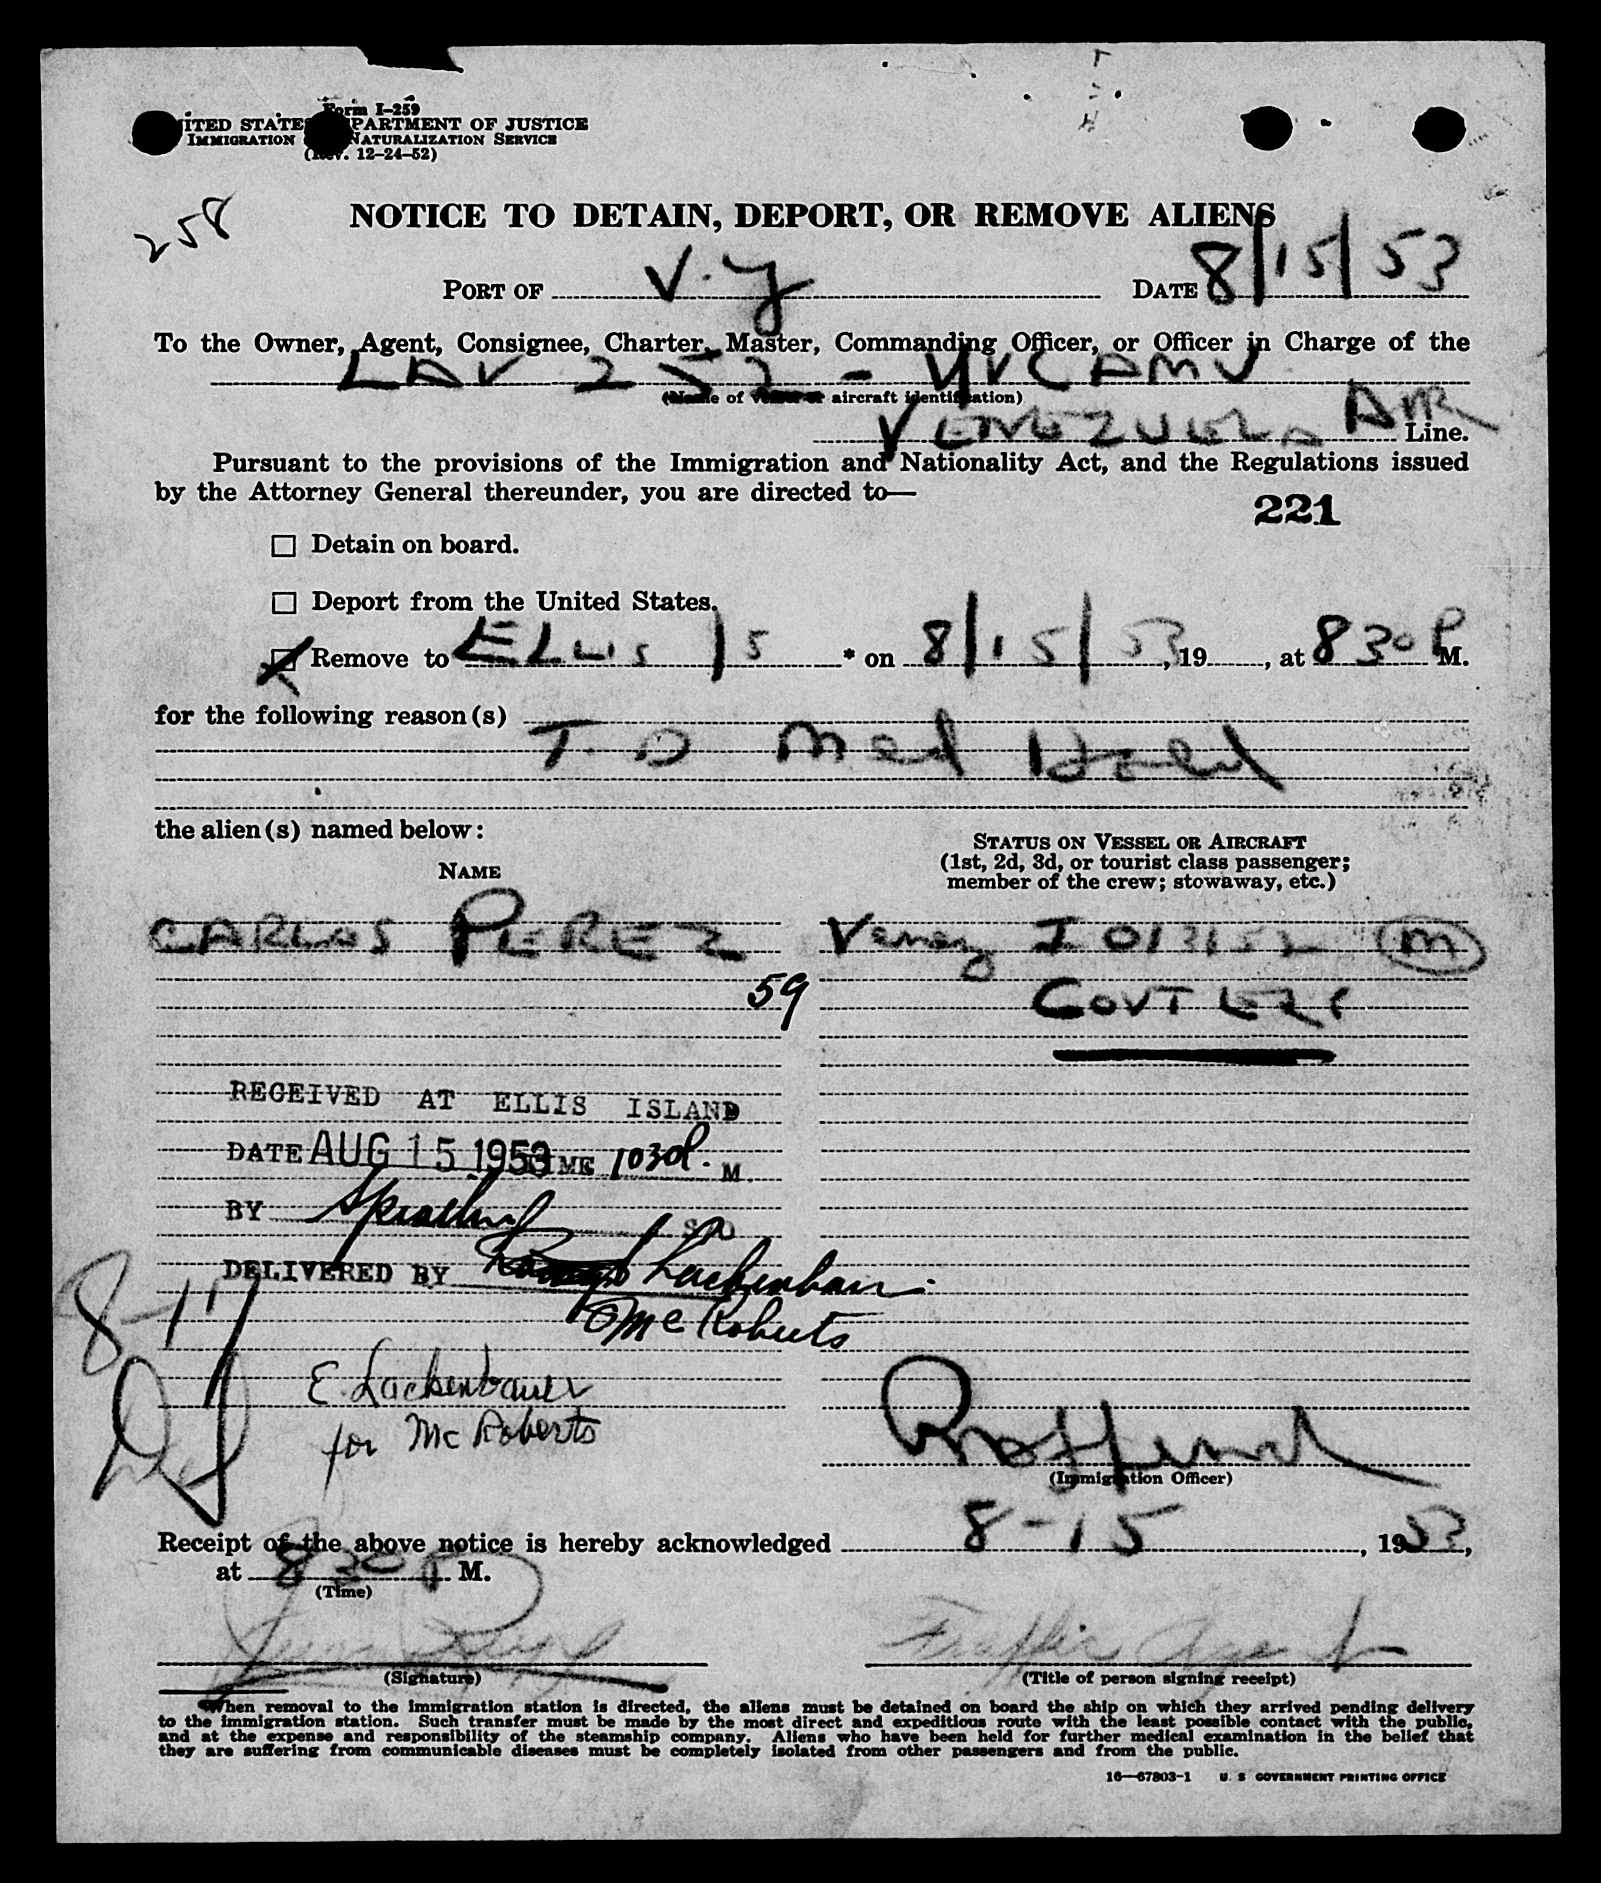 Form I-259
UNITED STATES DEPARTMENT OF JUSTICE
IMMIGRATION NATURALIZATION SERVICE
(Rev. 12-24-52)
258
NOTICE TO DETAIN, DEPORT, OR REMOVE ALIENS
PORT OF DATE 8/15/53
To the Owner, Agent, Consignee, Charter, Master, Commanding Officer, or Officer in Charge of the
LAV 252 - YVCAMU
(Name of vessel or aircraft identification)
VENEZUELA AIR Line.
Pursuant to the provisions of the Immigration and Nationality Act, and the Regulations issued
by the Attorney General thereunder, you are directed to—
221
☐ Detain on board.
☐ Deport from the United States.
Remove to ELLIS IS * on 8/15/53, 19 , at 830 P M.
for the following reason(s)
T.D Med Hold
the alien(s) named below:
STATUS ON VESSEL OR AIRCRAFT
NAME (1st, 2d, 3d, or tourist class passenger;
member of the crew; stowaway, etc.)
CARLOS PEREZ Venez I 013152 (M)
59 GOVT
RECEIVED AT ELLIS ISLAND
DATE AUG 15 1953 TIME 1030 P. M.
BY SO
DELIVERED BY Lackenbauer
McRoberts
8-17
E. Lackenbauer
for McRoberts
(Immigration Officer)
Receipt of the above notice is hereby acknowledged 8-15, 1953,
at 830 P M.
(Time)
Traffic Agent
(Signature) (Title of person signing receipt)
*When removal to the immigration station is directed, the aliens must be detained on board the ship on which they arrived pending delivery
to the immigration station. Such transfer must be made by the most direct and expeditious route with the least possible contact with the public,
and at the expense and responsibility of the steamship company. Aliens who have been held for further medical examination in the belief that
they are suffering from communicable diseases must be completely isolated from other passengers and from the public.
16—67803-1 U. S. GOVERNMENT PRINTING OFFICE